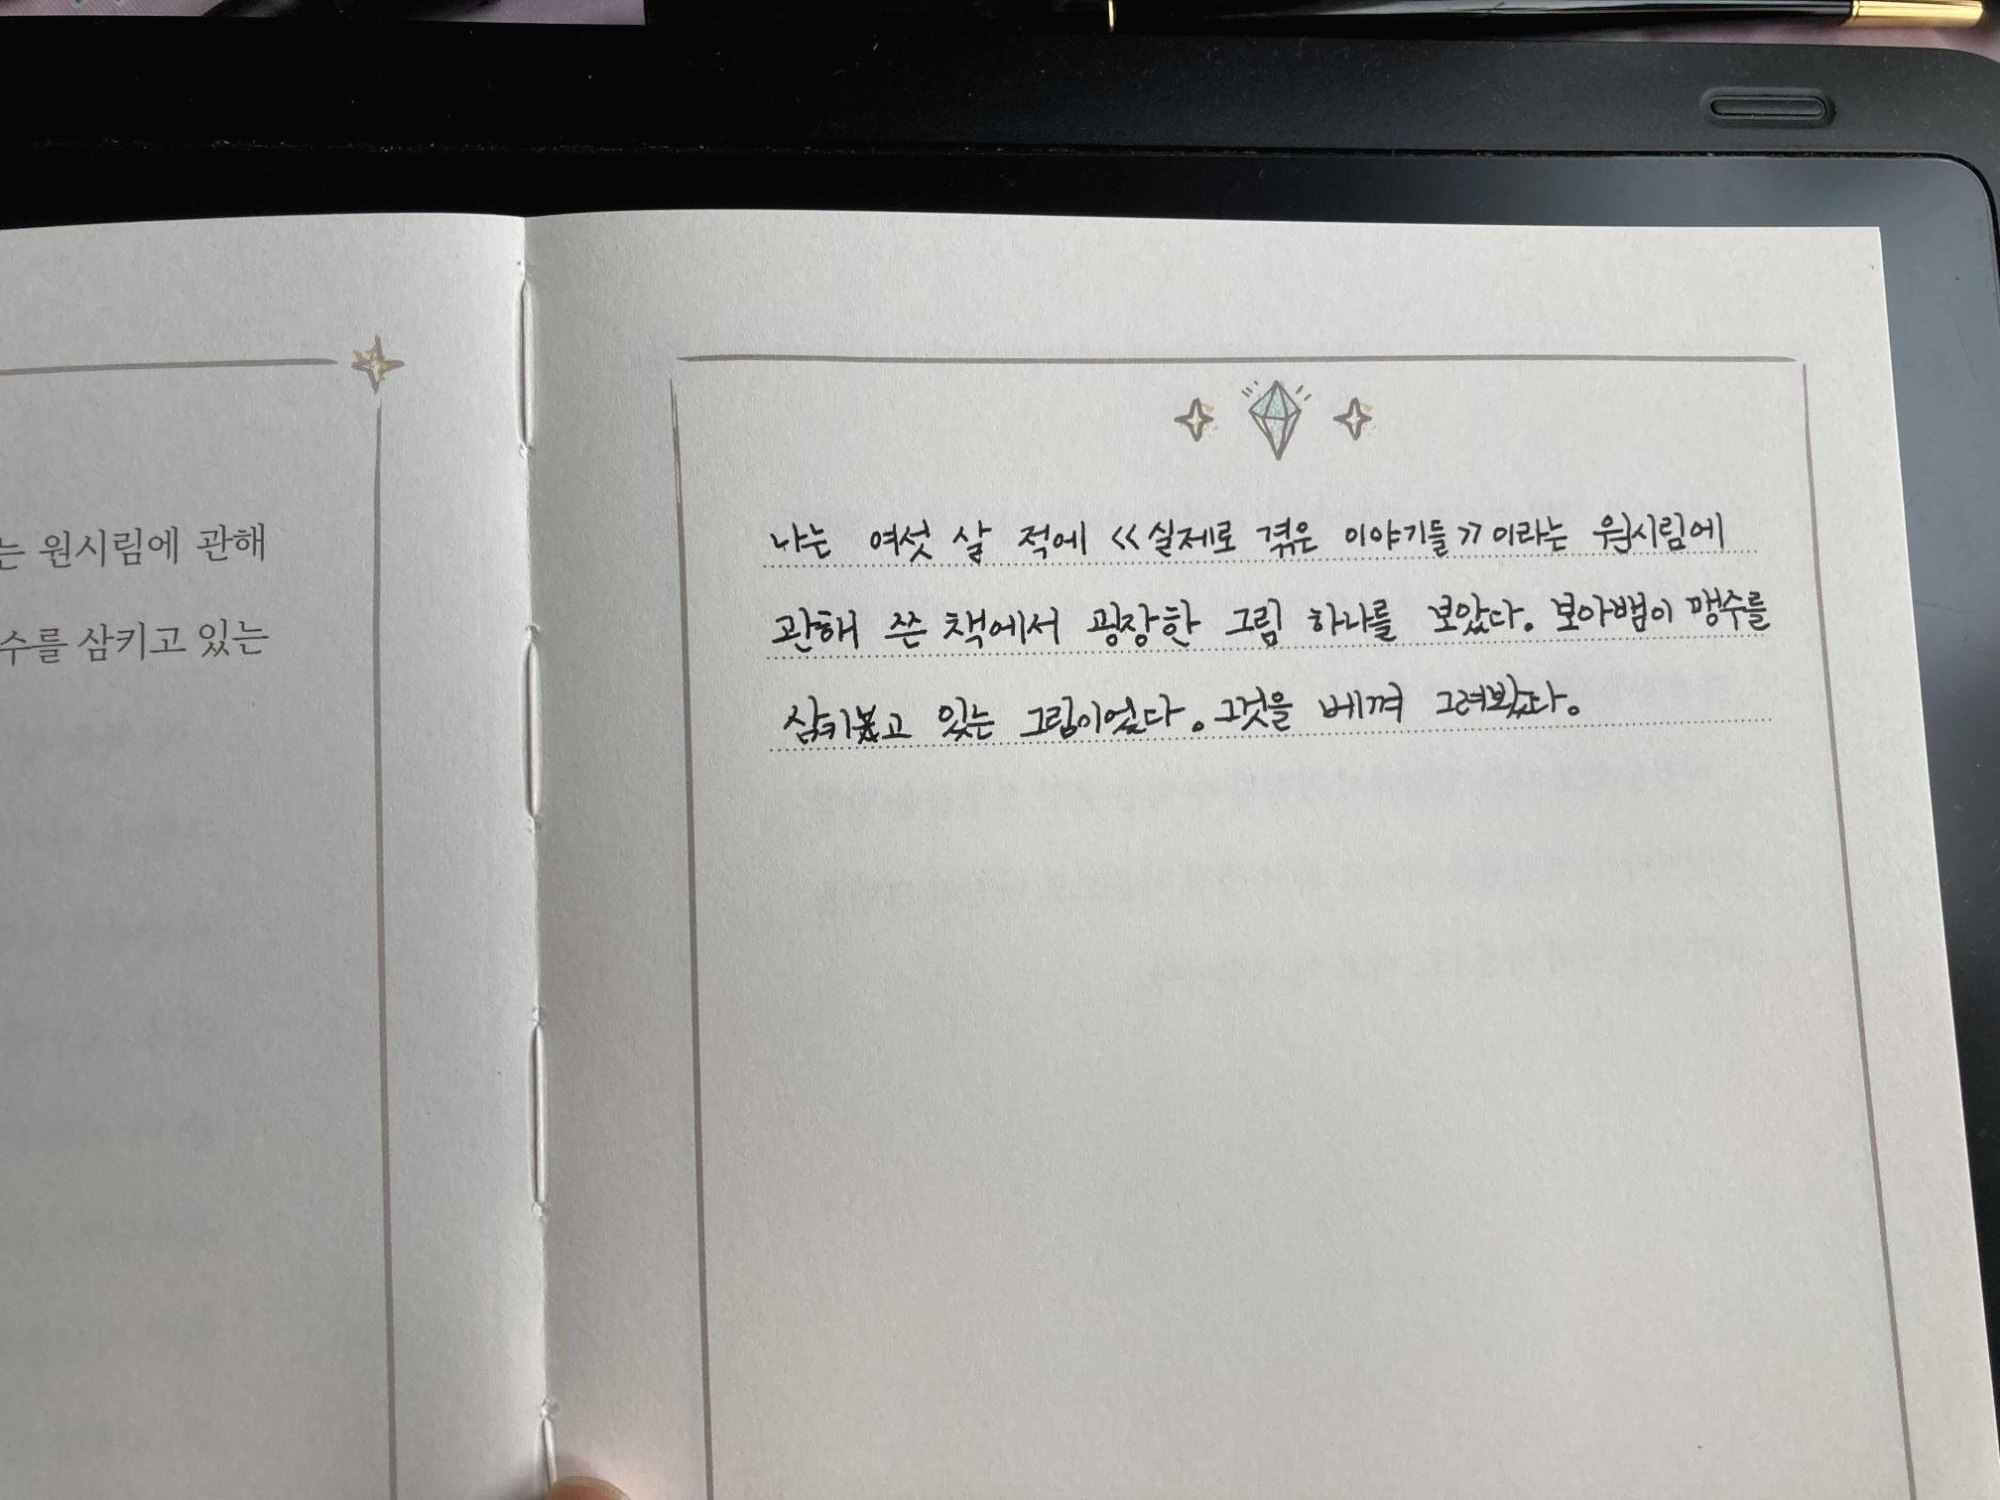 는 원시림에 관해
수를 삼키고 있는
나는 여섯 살 적에 《실제로 겪은 이야기들》이라는 원시림에
관해 쓴 책에서 굉장한 그림 하나를 보았다. 보아뱀이 맹수를
삼키고 있는 그림이었다. 그것을 베껴 그려봤다.